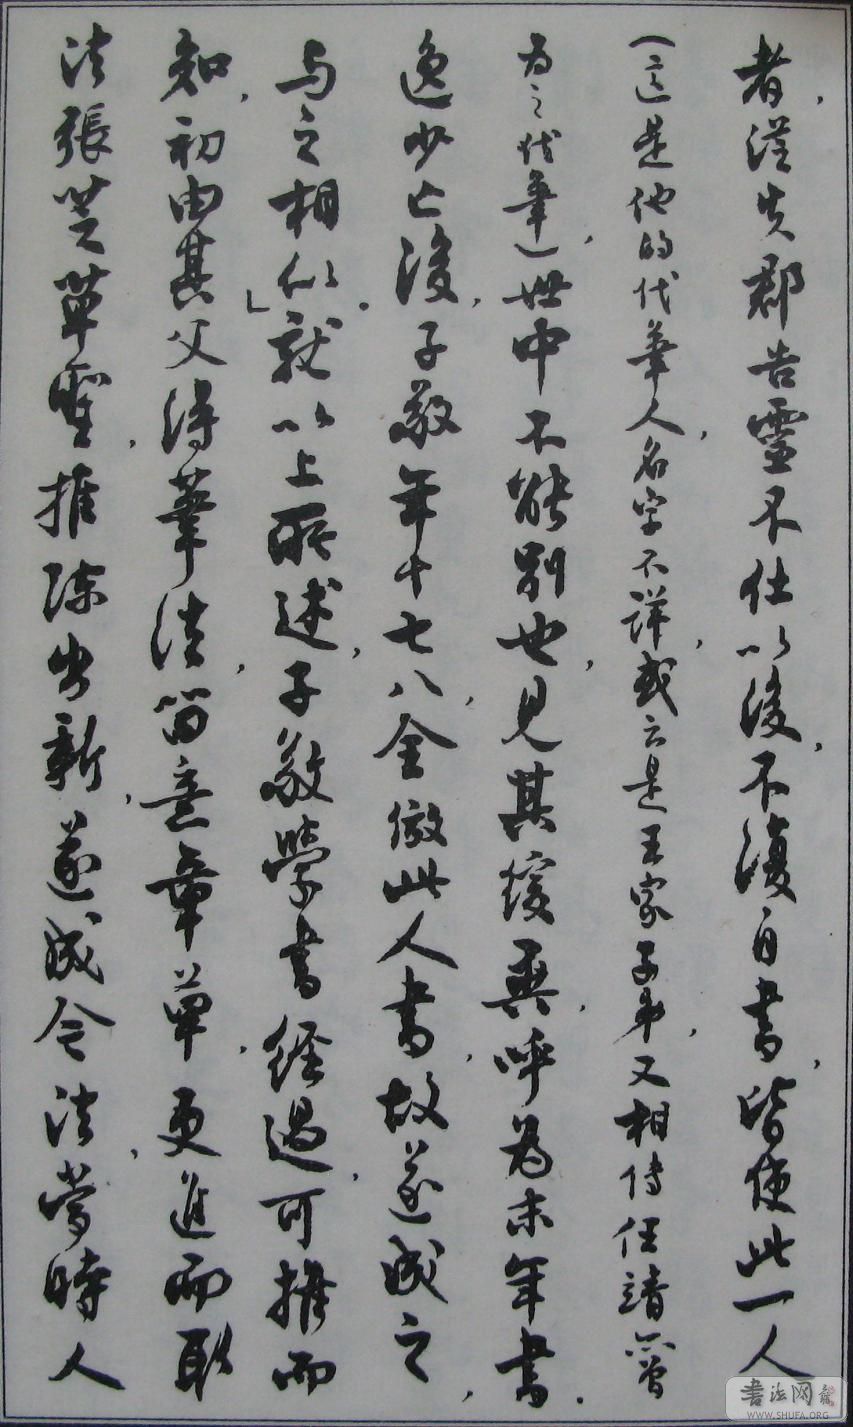 者，從失郡告靈不仕以後，不復自書，皆使此一人
（這是他的代筆人，名字不詳，或云是王家子弟，又相傳任靖曾
为之代筆），世中不能別也，見其緩異，呼为末年書．
逸少亡後，子敬年十七八，全倣此人書，故遂成之，
与之相似」．就以上所述，子敬學書經過，可推而
知，初由其父得筆法，留意章草，更進而取
法張芝草聖，推陳出新，遂成今法，當時人
書法网
WWW.SHUFA.ORG